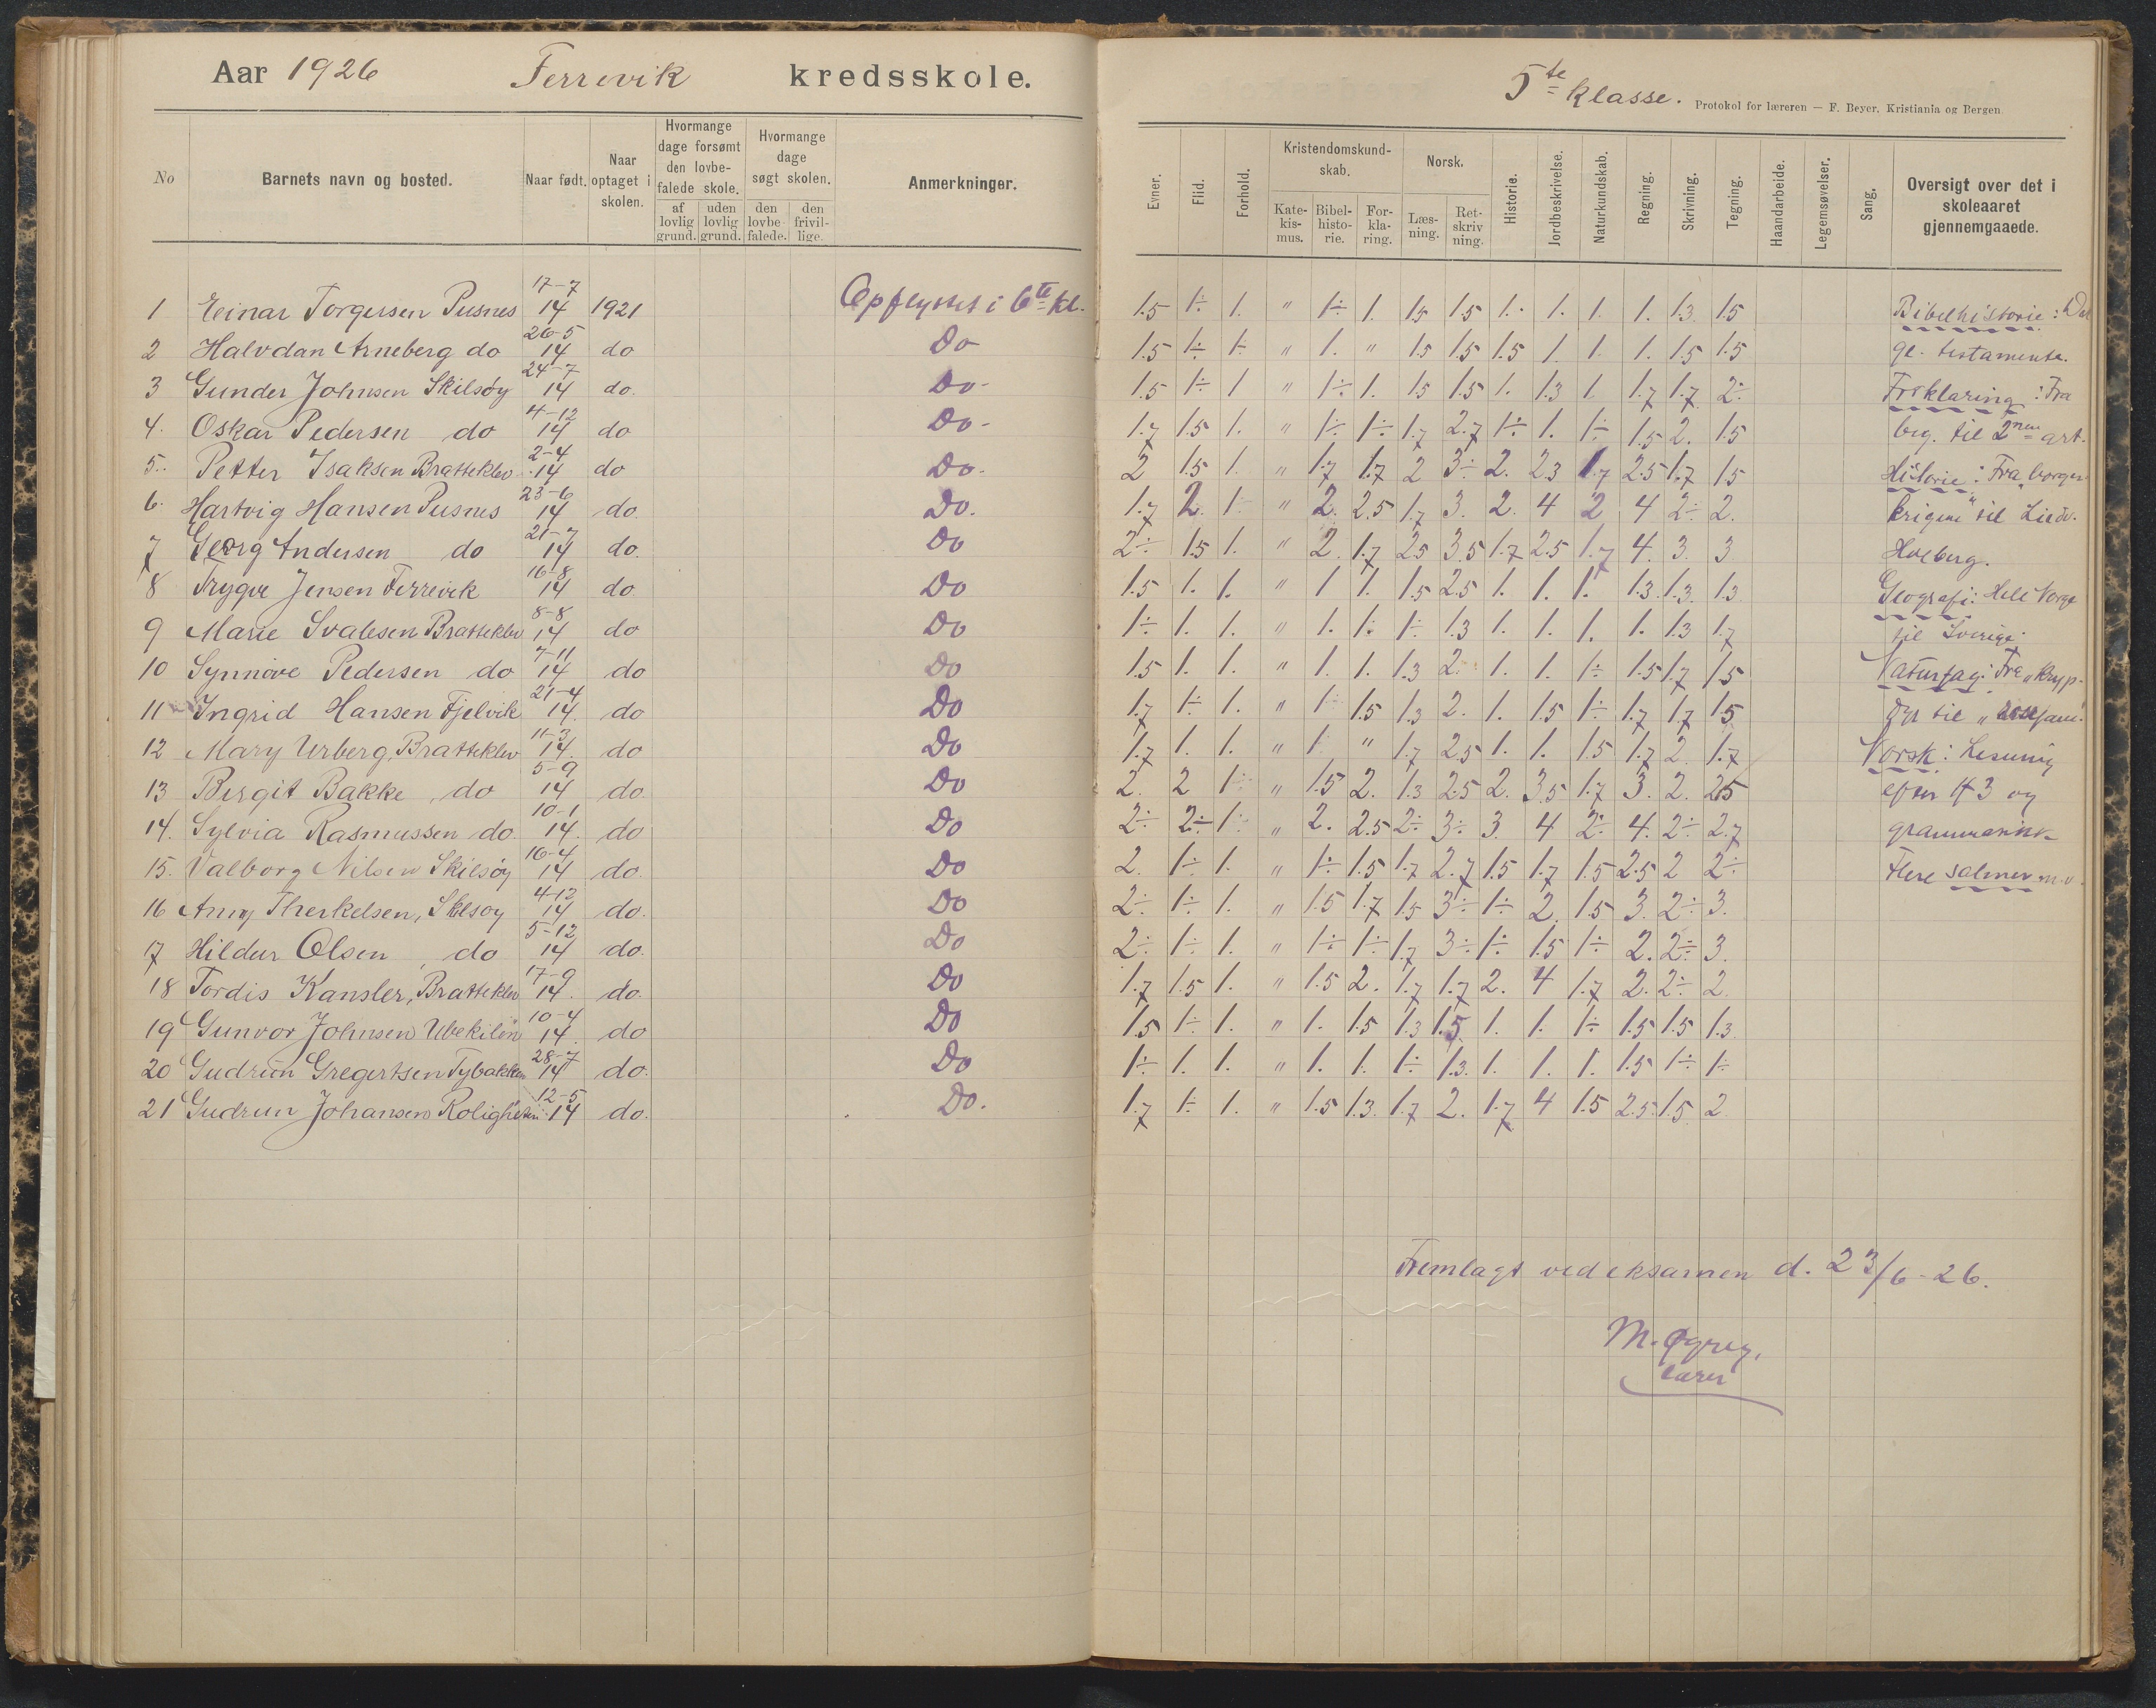 Aar 1926 Ferrevik kredsskole.
5te klasse. Protokol for læreren — F. Beyer. Kristiania og Bergen
No | Barnets navn og bosted. | Naar født. | Naar optaget i skolen. | Hvormange dage forsømt den lovbefalede skole. | af lovlig grund. | uden lovlig grund. | Hvormange dage søgt skolen. | den lovbefalede. | den frivillige. | Anmerkninger.
Evner. | Flid. | Forhold. | Kristendomskundskab. | Katekismus. | Bibelhistorie. | Forklaring. | Norsk. | Læsning. | Retskrivning. | Historie. | Jordbeskrivelse. | Naturkundskab. | Regning. | Skrivning. | Tegning. | Haandarbeide. | Legemsøvelser. | Sang. | Oversigt over det i skoleaaret gjennemgaaede.
1 Einar Torgersen Pusnes 17-7 14 1921 Opflyttet i 6te kl. 1.5 1÷ 1. " 1÷ 1. 1.5 1.5 1. 1. 1. 1. 1.3 1.5
2 Halvdan Arneberg do 26-5 14 do Do 1.5 1÷ 1÷ " 1. " 1.5 1.5 1.5 1. 1. 1. 1.5 1.5
3 Gunder Johnsen Skilsøy 24-7 14 do. Do- 1.5 1÷ 1 " 1÷ 1. 1.5 1.5 1. 1.3 1 1.7 1.7 2÷
4. Oskar Pedersen do 4-12 14 do Do- 1.7 1.5 1. " 1÷ 1÷ 1.7 2.7 1÷ 1. 1÷ 1.5 2. 1.5
5. Petter Isaksen Bratteklev 2-4 14 do Do. 2 1.5 1. " 1.7 1.7 2 3÷ 2. 2.3 1.7 2.5 1.7 1.5
6. Hartvig Hansen Pusnes 23-6 14 do. Do. 1.7 2. 1÷ " 2. 2.5 1.7 3. 2. 4 2 4 2÷ 2.
7 Georg Andersen do 21-7 14 do. Do 2÷ 1.5 1. " 2. 1.7 2.5 3.5 1.7 2.5 1.7 4. 3. 3
8 Trygve Jensen Ferrevik 16-8 14 do Do 1.5 1. 1. " 1 1. 1.5 2.5 1. 1. 1. 1.3 1.3 1.3
9 Marie Svalesen Bratteklev 8-8 14 do Do 1÷ 1. 1. " 1. 1÷ 1÷ 1.3 1. 1. 1. 1. 1.3 1.7
10 Synnøve Pedersen do 7-11 14 do Do 1.5 1. 1. " 1. 1. 1.3 2. 1. 1. 1÷ 1.5 1.7 1.5
11 Ingrid Hansen Fjelvik 21-4 14. do Do 1.7 1÷ 1. " 1÷ 1.5 1.3 2. 1. 1.5 1÷ 1.7 1.7 1.5
12 Mary Urberg, Bratteklev 11-3 14. do Do 1.7 1. 1. " 1÷ " 1.7 2.5 1. 1. 1.5 1.7 2 1.7
13 Bergit Bakke, do 5-9 14 do. Do 2. 2 1÷ " 1.5 2. 1.3 2.5 2. 3.5 1.7 3. 2. 2.5
14. Sylvia Rasmussen do. 10-1 14. do Do 2÷ 2÷ 1÷ " 2. 2.5 2÷ 3÷ 3. 4 2÷ 4. 2÷ 2.7
15. Valborg Nilsen Skilsøy 16-4 14 do. Do 2. 1÷ 1. " 1÷ 1.5 1.7 2.7 1.5 1.7 1.5 2.5 2 2÷
16 Anny Therkelsen, Skilsøy 4-12 14 do. Do 2÷ 1÷ 1. " 1.5 1.7 1.5 3÷ 1÷ 2. 1.5 3. 2÷ 3.
17 Hildur Olsen, do 5-12 14 do. Do 2÷ 1÷ 1. " 1÷ 1÷ 1.7 3÷ 1÷ 1.5 1÷ 2. 2÷ 3.
18 Tordis Kansler, Bratteklev 17-9 14. do. Do 1.7 1.5 1. " 1.5 2. 1.7 1.7 2. 4 1.7 2. 2÷ 2.
19 Gunvor Johnsen Ubekilen 10-4 14. do Do 1.5 1÷ 1. " 1. 1.5 1.3 1.5. 1. 1. 1÷ 1.5 1.5 1.3
20 Gudrun Gregertsen Tybakken 28-7 14 do. Do 1÷ 1. 1. " 1. 1. 1÷ 1.3. 1. 1. 1. 1.5 1÷ 1÷
21 Gudrun Johansen Roligheten 12-5 14 do. Do. 1.7 1÷ 1. " 1.5 1.3. 1.7 2. 1.7 4 1.5 2.5 1.5 2
Bibelhistorie: Det
gl. testamente.
Forklaring: Fra
beg. til 2nen art.
Historie: Fra „borger-
krigene" til Ludv.
Holberg.
Geografi: Hele Norge
til Sverige.
Naturfag: Fra „kryp-
dyr til
Norsk: Lesning
efter N 3 og
grammatikk
Flere salmer m.v.
Fremlagt ved eksamen d. 23/6-26.
M. Øgrey,
lærer